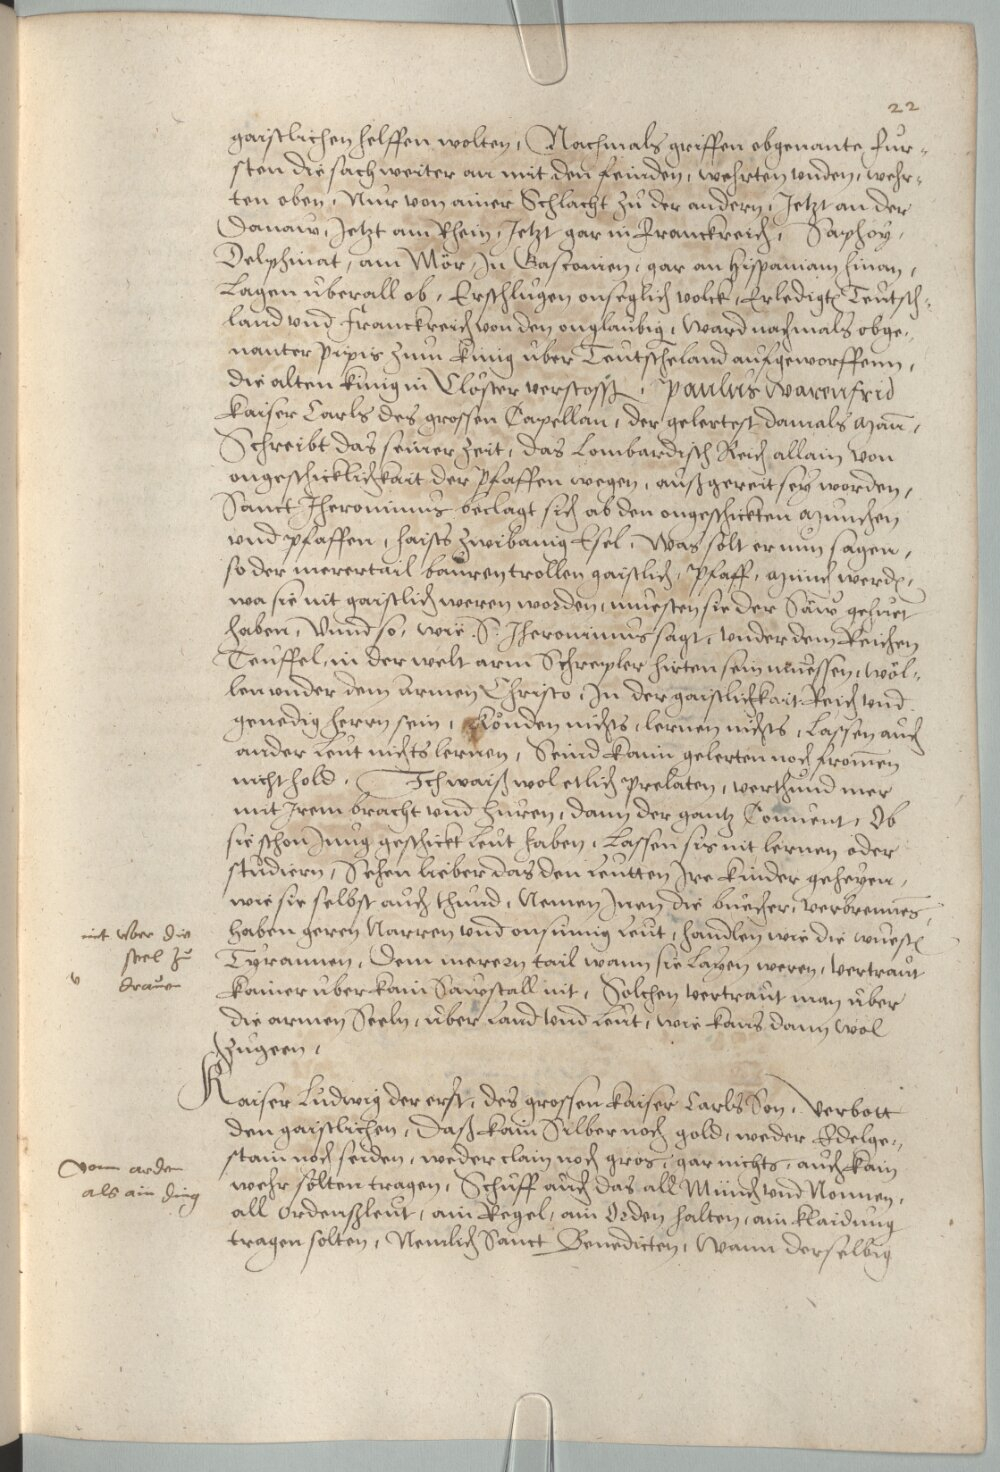 22
gaistlichen helffen wolten, Nachmals griffen obgenante Fur-
sten die sach weiter an mit den feinden, wehrten unden, wehr-
ten oben, Nur von ainer Schlacht zu der andern, Jetzt an der
Danaw, Jetzt am Rhein, Jetzt gar in Franckreich, Saphoy,
Delphinat, am Mör, In Gasconien, gar an Hispaniam hinan,
Lagen überall ob, Erschlugen onseglich volck, Erledigt Teutsch-
land und Franckreich von den onglaubig, Ward nachmals obge-
nanter Pipis zum Kinig über Teutscheland aufgeworffenn,
die alten kinig in Clöster verstosß, Paulus Warenfrid
Kaiser Carls des grossen Capellan, der gelertest damals Man,
Schreibt das seiner zeit, das Lombardisch Reich allain von
ongeschicklichkait der Pfaffen wegen, außgereit sey worden,
Sanct Iheronimus beclagt sich ab den ongeschickten Munchen
und pfaffen, haists zwibainig Esel, Was solt er nun sagen,
so der merertail bauren trollen gaistlich, Pfaff, Münch werden,
wa sie nit gaistlich weren worden, muesten sie der Säw gehuet
haben, Unnd so, wie S. Iheronimus sagt, under dem Reichen
Teuffel, in der welt arm Schrepler hirten sein muessen, wöl-
len under dem armen Christo, In der gaistlichkait Reich und
genedig herrn sein, Könden nichts, lernen nichts, Lassen auch
ander leut nichts lernen, Seind kainn gelerten noch fromen
nicht hold. Ich waiß wol etlich prelaten, verthund mer
mit Irem bracht und huren, dann der gantz Convent, Ob
sie schon Jung geschickt leut haben, Lassen sis nit lernen oder
studiern, Sehen lieber das den leutten Ire kinder geheyen,
wie sie selbst auch thund, Nemen Inen die buecher, verbrennes,
haben geren Narren und onsinnig leut, handlen wie die wuest
Tyrannen, Dem merern tail wann sie Layen weren, vertraut
kainer über kain Sawstall nit, Solchen vertraut man über
die armen Seeln, über land und leut, wie kans dann wol
zugeen,
nit uber die
seel zu
drauen
Kaiser Ludwig der erst, des grossen Kaiser Carls Son, Verbott
den gaistlichen, Daß kain Silber noch gold, weder Edelge-
stain noch seiden, weder clain noch gros, gar nichts, auch kain
wehr solten tragen, Schuff auch das all Münch und Nonnen,
all Ordensleut, ain Regel, ain Orden halten, ain klaidung
tragen solten, Nemlich Sanct Benedicten, Wann derselbig
Vom orden
als ain ding